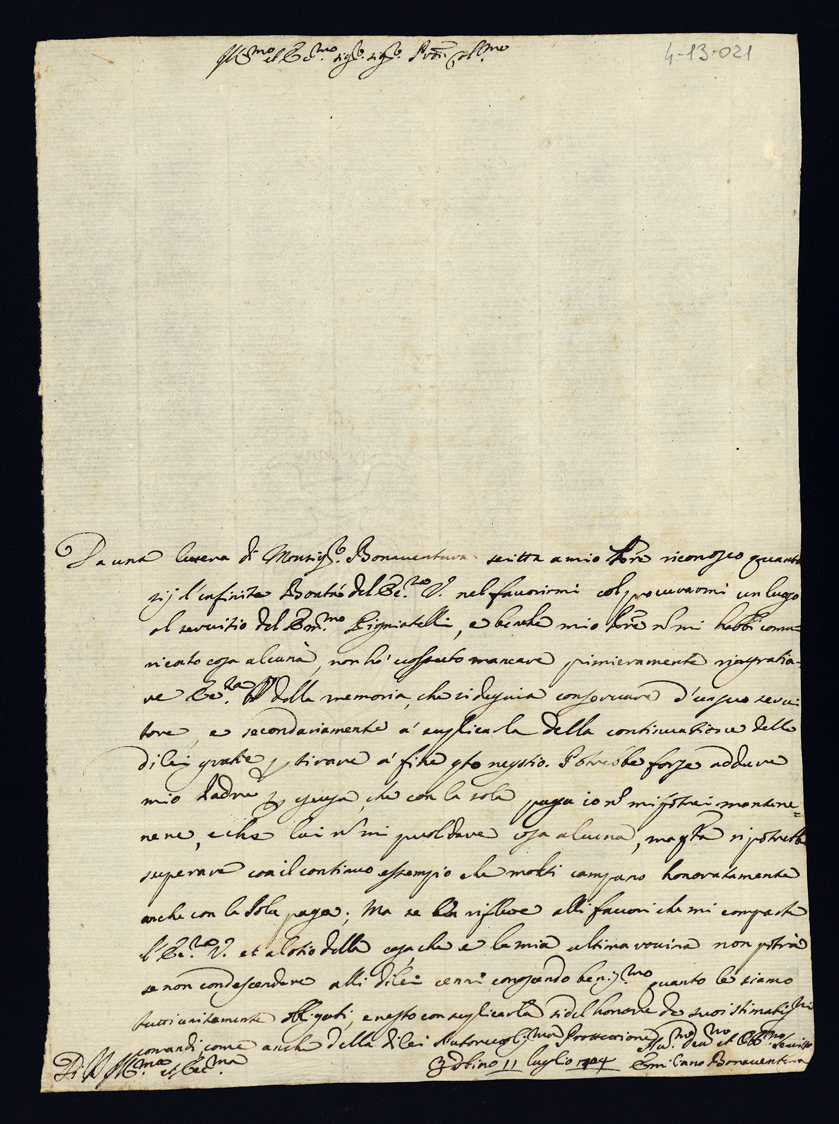 Ill.mo et Ecc.mo sig.r sig.r Pron Col.mo
4-13-021
Da una lettera di Monsig.r Bonaventura scritta a mio Pre riconosco quanto
sij l'infinita Bontà del Ecc.za V. nel favorirmi col procurarmi un luogo
al servitio del Em.mo Pigniatelli, e benche mio Pre n mi habbi comu-
nicato cosa alcuna, non hò mancare primieramente ringratia-
re Ecc.za V della memoria, che si degnia conservare d'un suo servi-
tore, e secondariamente à suplicarla della continuatione delle
di lei gratie p tirare à fine qto negotio. Potrebbe forse addure
mio Padre p scusa, che con la sola paga io n mi potrei mantene=
nere, e che lui n mi puol dare cosa alcuna, ma qta si potrebbe
superare con il continuo essempio che molti campano honoratamente
anche con la sola paga; Ma se ben riflette alli favori che mi comparte
l'Ecc.za V. et al otio della casa che e la mia ultima rovina non potrà
se non condescendere alli di lei cenni conoscendo benis.mo quanto le siamo
tutti unitamente obligati, e resto con suplicarla si del honore de suoi stimatis.mi
comandi come anche della di lei Autorevolis.ma Protettione
Di V Ill.ma et Ecc.ma
Urbino 11 luglio
Hu.mo Dev.mo et Obb.mo servitore
Emiliano Bonaventura